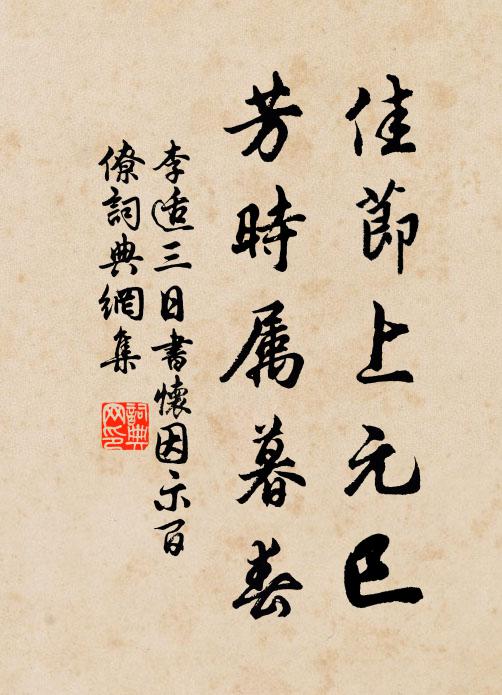 佳節上元巳
芳時属暮春
李适三日書懷因示百
僚詞典網集
詞典网印